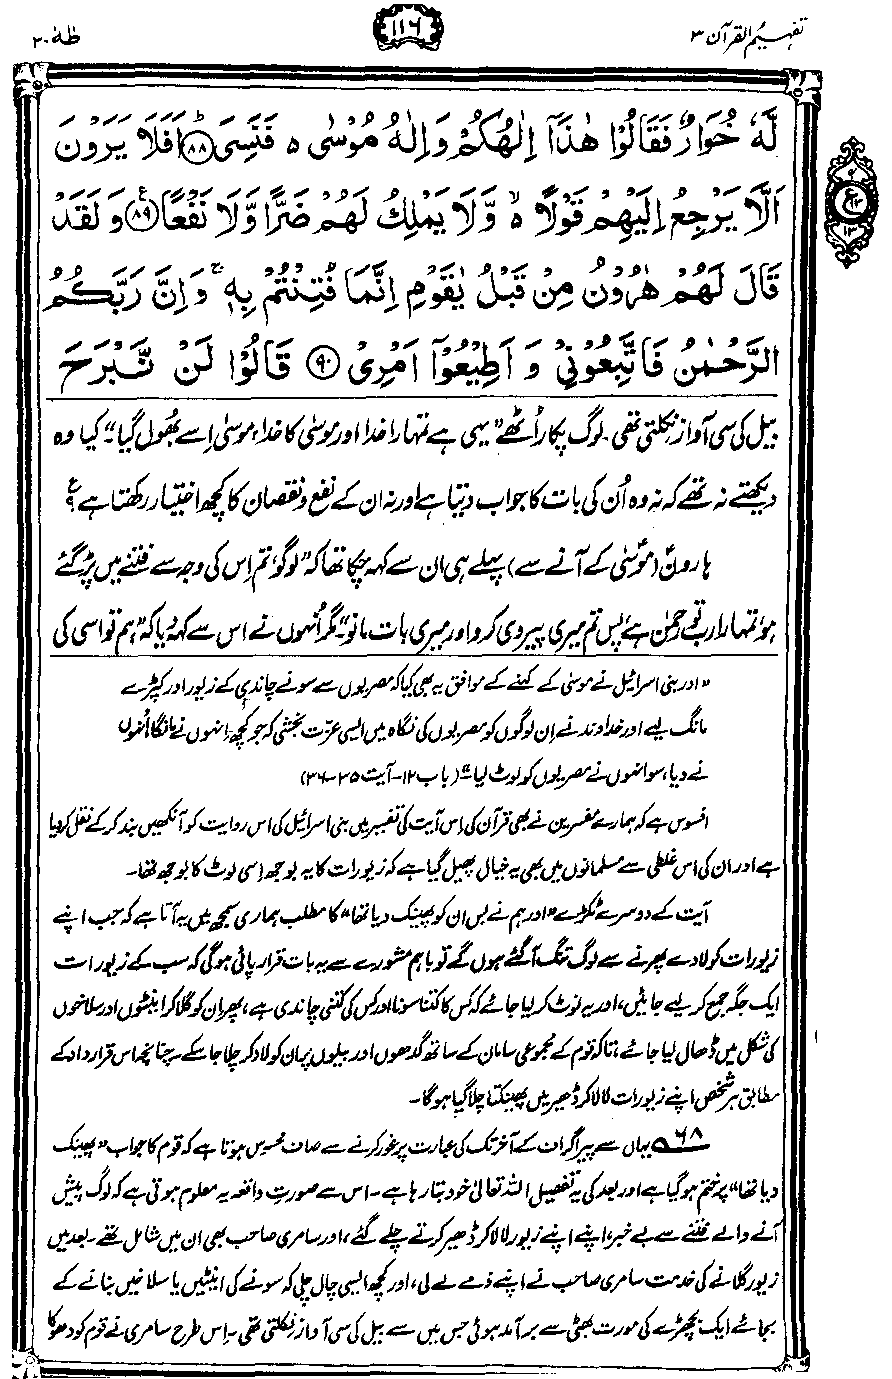 تفہیم القرآن ۳
۱۱۶
طٰہٰ ۲۰
لَّهٗ خُوَارٌ فَقَالُوْا هٰذَآ اِلٰهُكُمْ وَاِلٰهُ مُوْسٰی ە فَنَسِیَ ؕ ﴿۸۸﴾ اَفَلَا یَرَوْنَ
اَلَّا یَرْجِعُ اِلَیْهِمْ قَوْلًا ە ۙ وَّلَا یَمْلِكُ لَهُمْ ضَرًّا وَّلَا نَفْعًا ﴿۸۹﴾ ع وَ لَقَدْ
قَالَ لَهُمْ هٰرُوْنُ مِنْ قَبْلُ یٰقَوْمِ اِنَّمَا فُتِنْتُمْ بِهٖ ۚ وَاِنَّ رَبَّكُمُ
الرَّحْمٰنُ فَاتَّبِعُوْنِیْ وَ اَطِیْعُوْۤا اَمْرِیْ ﴿۹۰﴾ قَالُوْا لَنْ نَّبْرَحَ
بیل کی سی آواز نکلتی تھی۔ لوگ پکار اُٹھے "یہی ہے تمہارا خدا اور موسیٰ کا خدا، موسیٰ اِسے بھُول گیا"۔ کیا وہ
دیکھتے نہ تھے کہ نہ وہ اُن کی بات کا جواب دیتا ہے اور نہ ان کے نفع و نقصان کا کچھ اختیار رکھتا ہے؟ ع
ہارونؑ (موسیٰؑ کے آنے سے) پہلے ہی ان سے کہہ چکا تھا کہ "لوگو، تم اِس کی وجہ سے فتنے میں پڑ گئے
ہو، تمہارا رب تو رحمٰن ہے، پس تم میری پیروی کرو اور میری بات مانو"۔ مگر اُنہوں نے اس سے کہہ دیا کہ "ہم تو اسی کی
"اور بنی اسرائیل نے موسیٰ کے کہنے کے موافق یہ بھی کیا کہ مصریوں سے سونے چاندی کے زیور اور کپڑے
مانگ لیے اور خداوند نے ان لوگوں کو مصریوں کی نگاہ میں ایسی عزت بخشی کہ جو کچھ انہوں نے مانگا اُنہوں
نے دیا، سو انہوں نے مصریوں کو لوٹ لیا" (باب ۱۲-آیت ۳۵-۳۶)
افسوس ہے کہ ہمارے مفسرین نے بھی قرآن کی اِس آیت کی تفسیر میں بنی اسرائیل کی اس روایت کو آنکھیں بند کر کے نقل کر دیا
ہے اور ان کی اس غلطی سے مسلمانوں میں بھی یہ خیال پھیل گیا ہے کہ زیورات کا یہ بوجھ اِسی لوٹ کا بوجھ تھا۔
آیت کے دوسرے ٹکڑے "اور ہم نے بس ان کو پھینک دیا تھا" کا مطلب ہماری سمجھ میں یہ آتا ہے کہ جب اپنے
زیورات کو لادے پھرنے سے لوگ تنگ آگئے ہوں گے تو باہم مشورے سے یہ بات قرار پائی ہوگی کہ سب کے زیورات
ایک جگہ جمع کر لیے جائیں، اور یہ نوٹ کر لیا جائے کہ کس کا کتنا سونا اور کس کی کتنی چاندی ہے، پھر ان کو گلا کر اینٹوں اور سلاخوں
کی شکل میں ڈھال لیا جائے، تاکہ قوم کے مجموعی سامان کے ساتھ گدھوں اور بیلوں پر ان کو لاد کر چلا جا سکے۔ چنانچہ اس قرارداد کے
مطابق ہر شخص اپنے زیورات لا لا کر ڈھیر میں پھینکتا چلا گیا ہوگا۔
۶۸ یہاں سے پیراگراف کے آخر تک کی عبارت پر غور کرنے سے صاف محسوس ہوتا ہے کہ قوم کا جواب "پھینک
دیا تھا" پر ختم ہو گیا ہے اور بعد کی یہ تفصیل اللہ تعالیٰ خود بتا رہا ہے۔ اس سے صورتِ واقعہ یہ معلوم ہوتی ہے کہ لوگ پیش
آنے والے فتنے سے بے خبر، اپنے اپنے زیور لا لا کر ڈھیر کرتے چلے گئے، اور سامری صاحب بھی ان میں شامل تھے۔ بعد میں
زیور گلانے کی خدمت سامری صاحب نے اپنے ذمے لے لی، اور کچھ ایسی چال چلی کہ سونے کی اینٹیں یا سلاخیں بنانے کے
بجائے ایک بچھڑے کی مورت بھٹی سے برآمد ہوئی جس میں سے بیل کی سی آواز نکلتی تھی۔ اِس طرح سامری نے قوم کو دھوکا